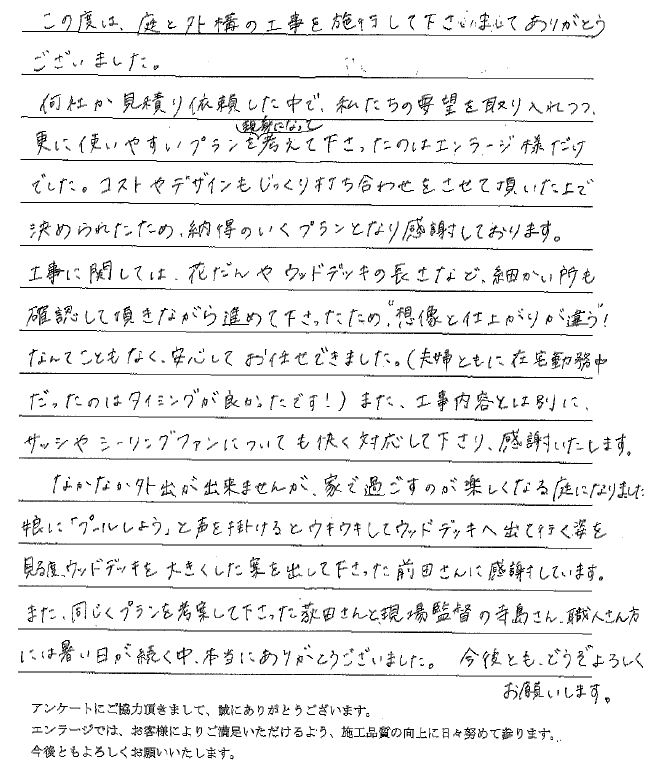 この度は、庭と外構の工事を施行して下さいましてありがとう
ございました。
何社か見積り依頼した中で、私たちの要望を取り入れつつ、
親身になって
更に使いやすいプランを考えて下さったのはエンラージ様だけ
でした。コストやデザインもじっくり打ち合わせをさせて頂いた上で
決められたため、納得のいくプランとなり感謝しております。
工事に関しては、花だんやウッドデッキの長さなど、細かい所も
確認して頂きながら進めて下さったため、"想像と仕上がりが違う"!
なんてこともなく、安心してお任せできました。(夫婦ともに在宅勤務中
だったのはタイミングが良かったです!)また、工事内容とは別に、
サッシやシーリングファンについても快く対応して下さり、感謝いたします。
なかなか外出が出来ませんが、家で過ごすのが楽しくなる庭になりました
娘に「プールしよう」と声を掛けるとウキウキしてウッドデッキへ出て行く姿を
見る度、ウッドデッキを大きくした案を出して下さった前田さんに感謝しています。
また、同じくプランを考案して下さった荻田さんと、現場監督の寺島さん、職人さん方
には暑い日が続く中、本当にありがとうございました。 今後とも、どうぞよろしく
お願いします。
アンケートにご協力頂きまして、誠にありがとうございます。
エンラージでは、お客様によりご満足いただけるよう、施工品質の向上に日々努めて参ります。
今後ともよろしくお願いいたします。